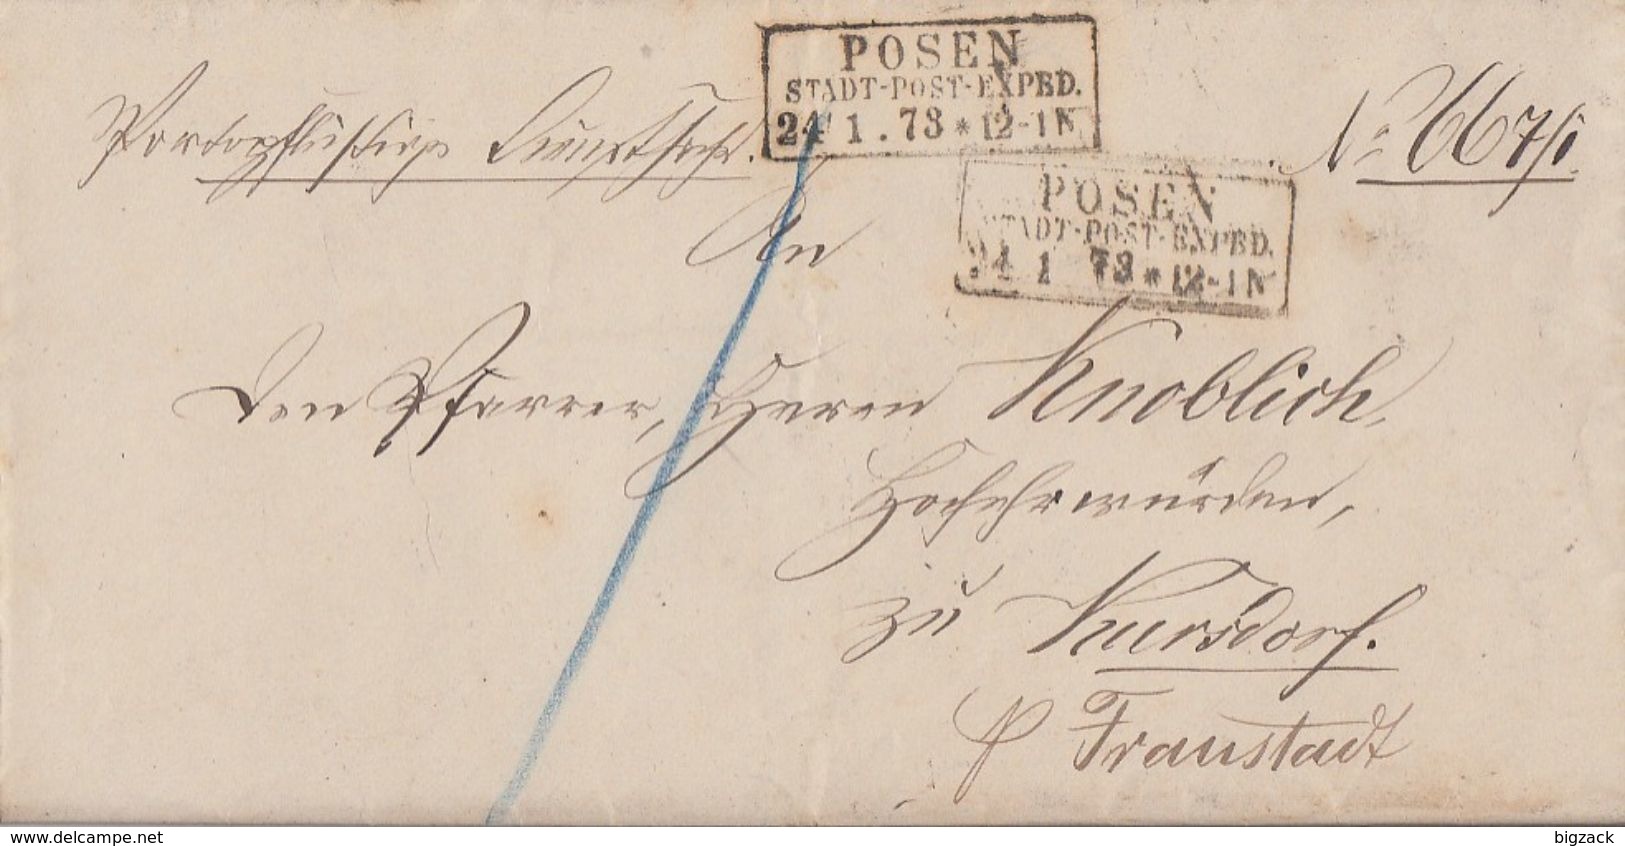 POSEN
STADT-POST-EXPED.
24 1. 73 * 12-1 N
Portopflichtige Dienstsache.
No 667/1.
POSEN
STADT-POST-EXPED.
24 1 73 * 12-1 N
An
den Pfarrer, Herrn Knoblich
Hochehrwürden,
zu Kursdorf.
p Fraustadt
www.delcampe.net
bigzack